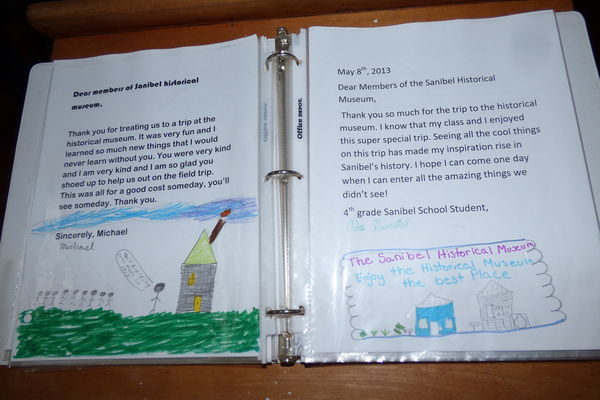 Dear members of Sanibel historical
museum.
Thank you for treating us to a trip at the
historical museum. It was very fun and I
learned so much new things that I would
never learn without you. You were very kind
and I am very kind and I am so glad you
shoed up to help us out on the field trip.
This was all for a good cost someday, you'll
see someday. Thank you.
Sincerely, Michael
Michael
Office DEPOT.
May 8th, 2013
Dear Members of the Sanibel Historical
Museum,
Thank you so much for the trip to the historical
museum. I know that my class and I enjoyed
this super special trip. Seeing all the cool things
on this trip has made my inspiration rise in
Sanibel's history. I hope I can come one day
when I can enter all the amazing things we
didn't see!
4th grade Sanibel School Student,
The Sanibel Historical Museum
Enjoy the Historical Museum
the best Place